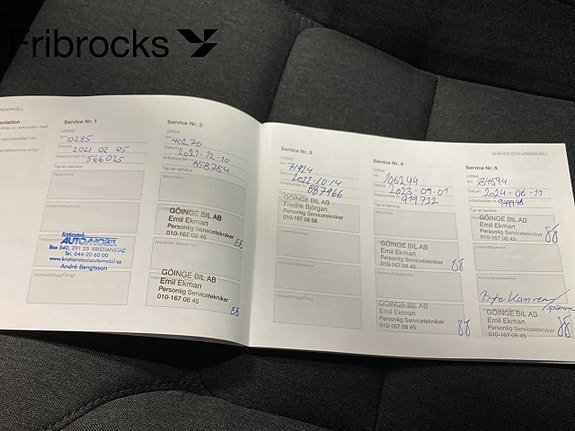 Fribrocks
SERVICE OCH UNDERHÅLL
Service Nr. 1
Utförd
km 10285
Datum 2021 02 05
Arbetsorder nr 566025
Typ av service
Basservice
Kristianstads
AUTOMOBIL
Box 540, 291 25 KRISTIANSTAD
Tel. 044-20 60 00
www.kristianstadsautomobil.se
André Bengtsson
Service Nr. 2
Utförd
km 40270
Datum 2021-12-10
Arbetsorder nr 858754
Typ av service
Basservice
GÖINGE BIL AB
Emil Ekman
Personlig Servicetekniker
010-167 08 45
EE
Anpassad basservice
GÖINGE BIL AB
Emil Ekman
Personlig Servicetekniker
010-167 08 45
EE
Service Nr. 3
Utförd
km 71924
Datum 2022-10-14
Arbetsorder nr 887966
Typ av service
GÖINGE BIL AB
Fredrik Björgan
Personlig Servicetekniker
010-167 08 56
Service Nr. 4
Utförd
km 106244
Datum 2023-09-01
Arbetsorder nr 919722
Typ av service
Basservice
GÖINGE BIL AB
Emil Ekman
Personlig Servicetekniker
010-167 08 45
GÖINGE BIL AB
Emil Ekman
Personlig Servicetekniker
010-167 08 45
Service Nr. 5
Utförd
Datum 2024-06-11
Arbetsorder nr
Typ av service
GÖINGE BIL AB
Emil Ekman
Personlig Servicetekniker
010-167 08 45
Anpassad basservice
Byte Kamrem/
GÖINGE BIL AB
Emil Ekman
Personlig Servicetekniker
010-167 08 45